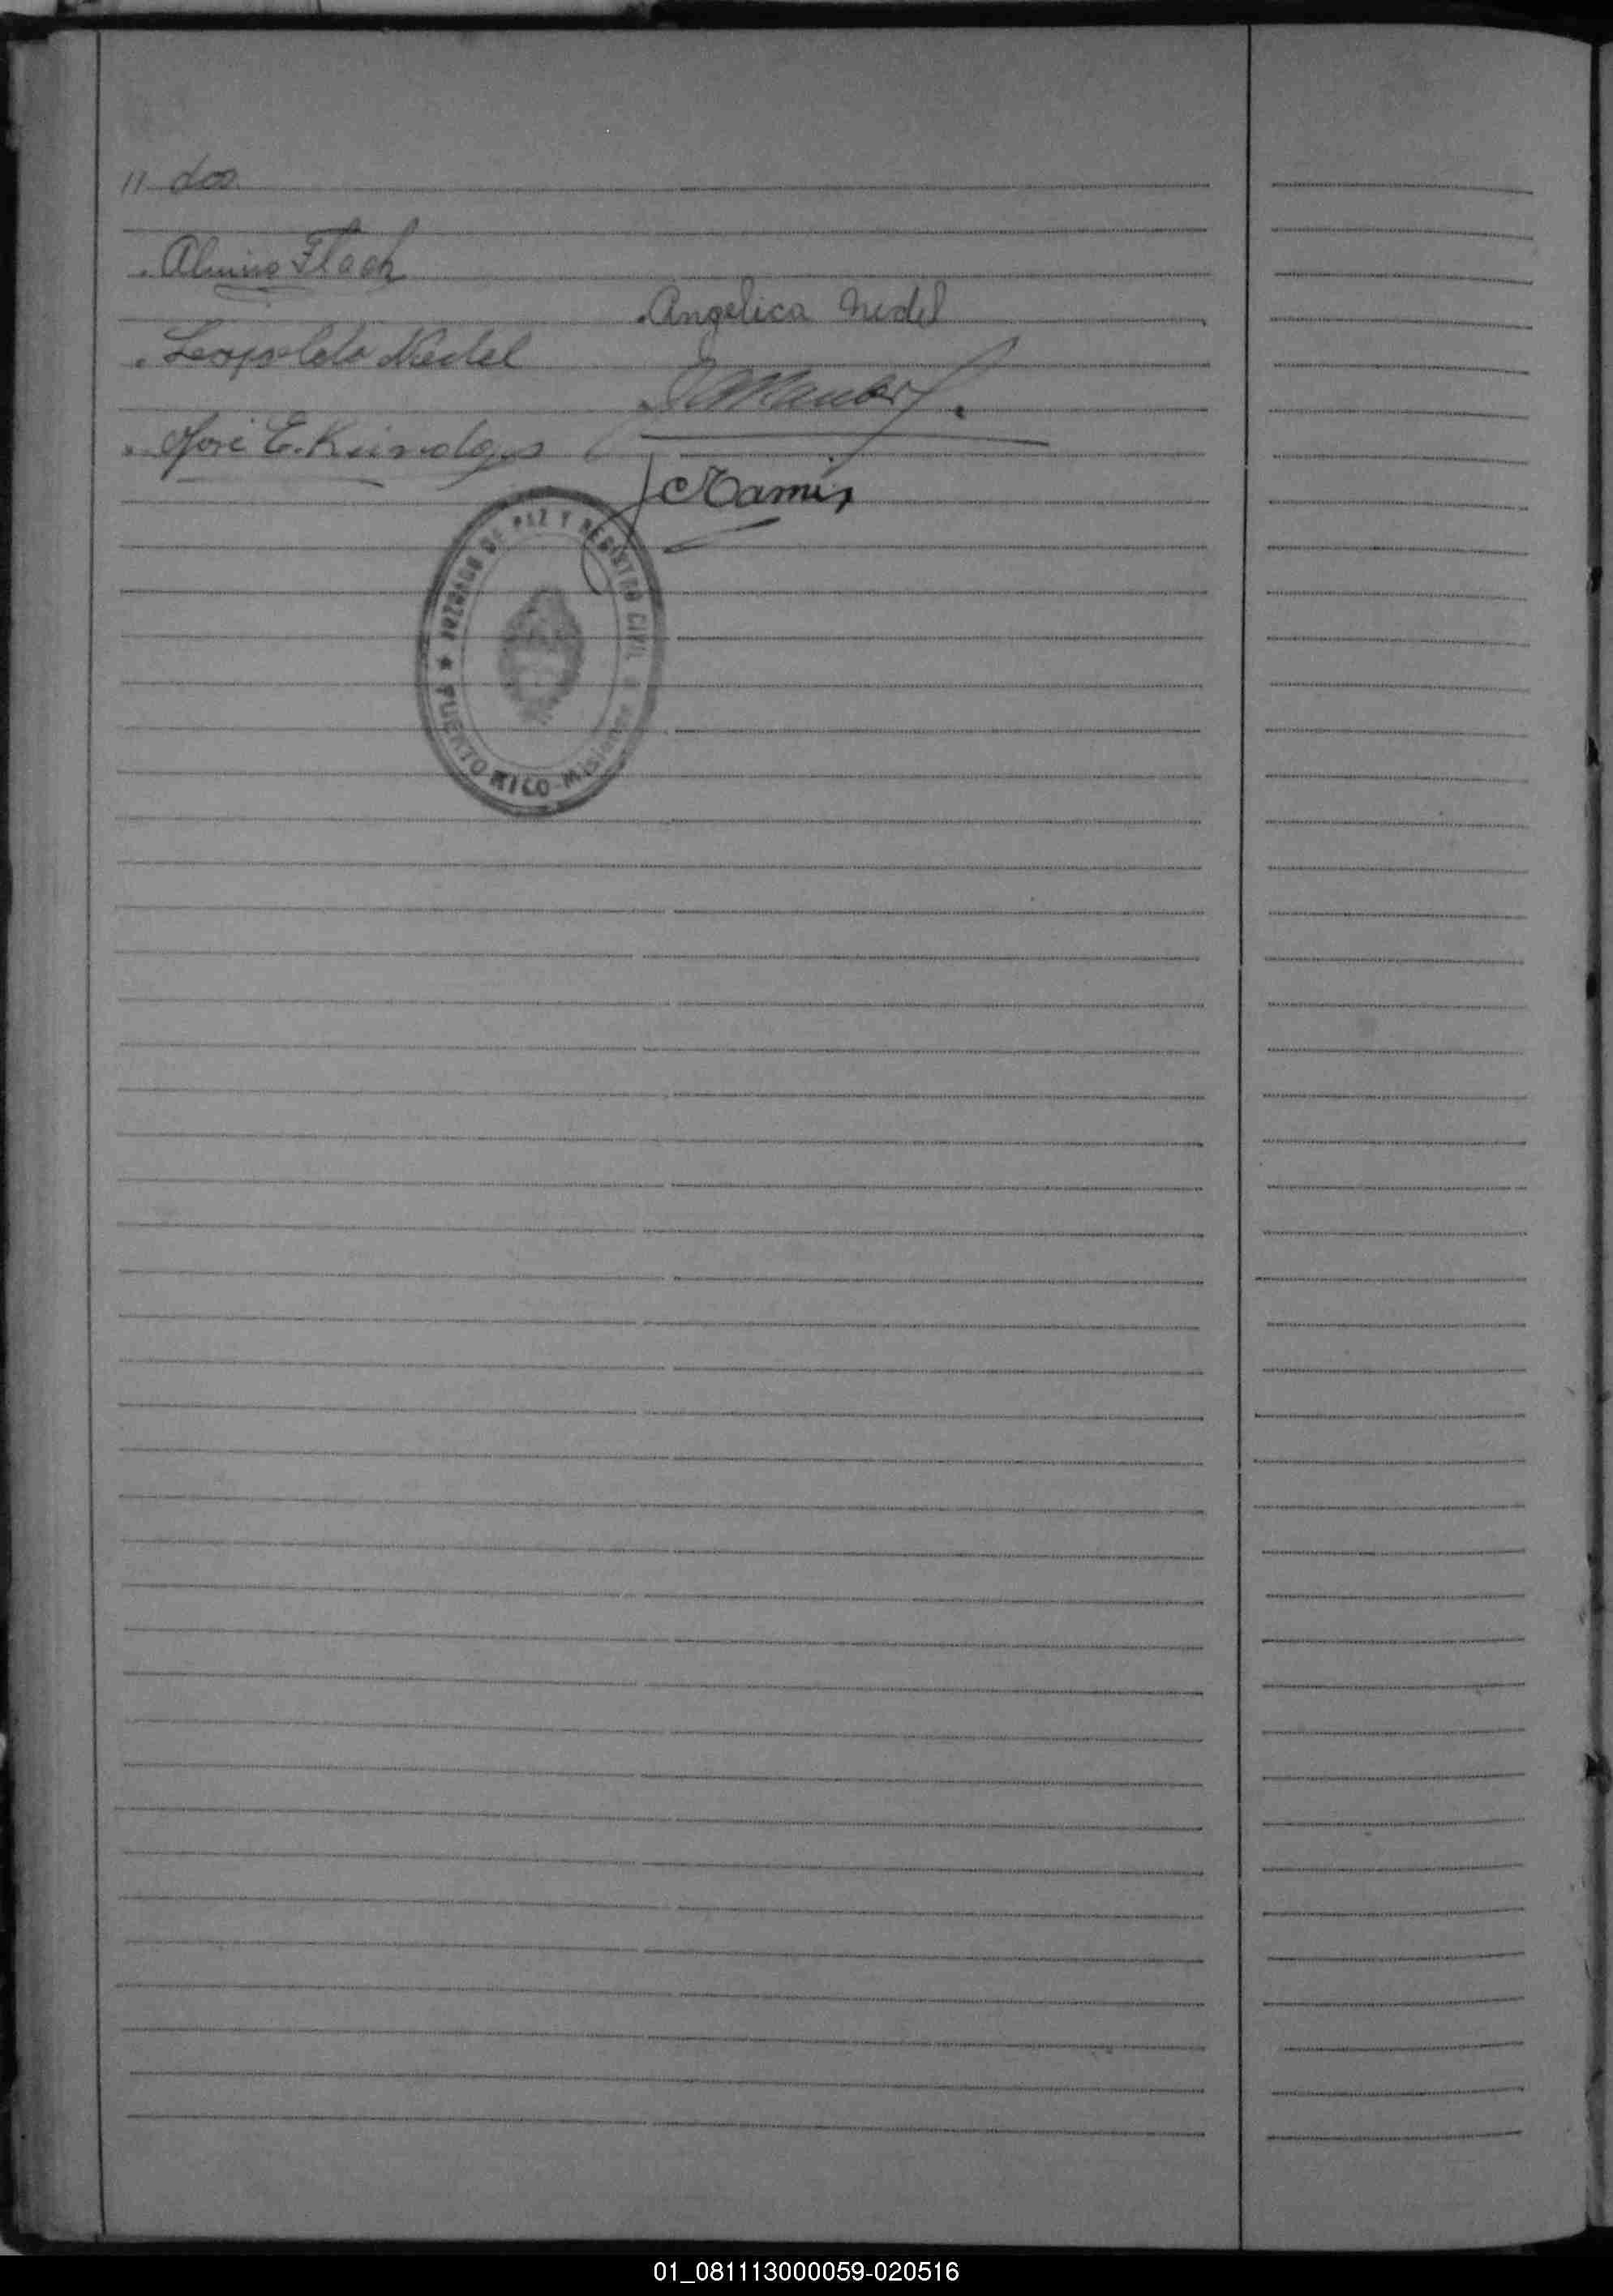 11 dos
Almiro Flach
Angelica Nedel
Leopoldo Nedel
José E.
JUZGADO DE PAZ Y REGISTRO CIVIL
PUERTO RICO - Misiones
01_081113000059-020516